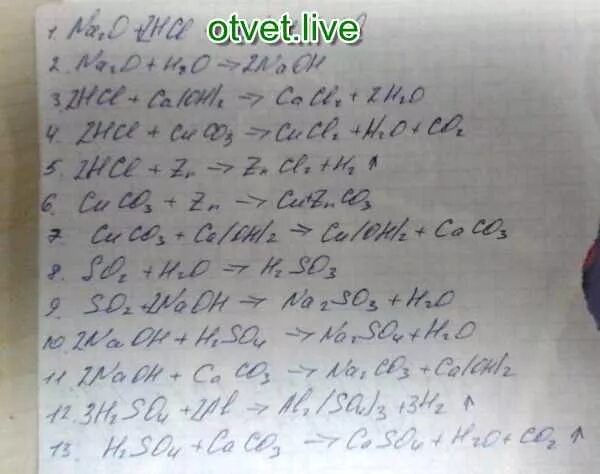 otvet.live
1. Na2O + 2HCl
2. Na2O + H2O → 2NaOH
3. 2HCl + Ca(OH)2 → CaCl2 + 2H2O
4. 2HCl + CuCO3 → CuCl2 + H2O + CO2
5. 2HCl + Zn → ZnCl2 + H2 ↑
6. CuCO3 + Zn → Cu+ZnCO3
7. CuCO3 + Ca(OH)2 → Cu(OH)2 + CaCO3
8. SO2 + H2O → H2SO3
9. SO2 + 2NaOH → Na2SO3 + H2O
10. 2NaOH + H2SO4 → Na2SO4 + H2O
11. 2NaOH + CaCO3 → Na2CO3 + Ca(OH)2
12. 3H2SO4 + 2Al → Al2(SO4)3 + 3H2 ↑
13. H2SO4 + CaCO3 → CaSO4 + H2O + CO2 ↑